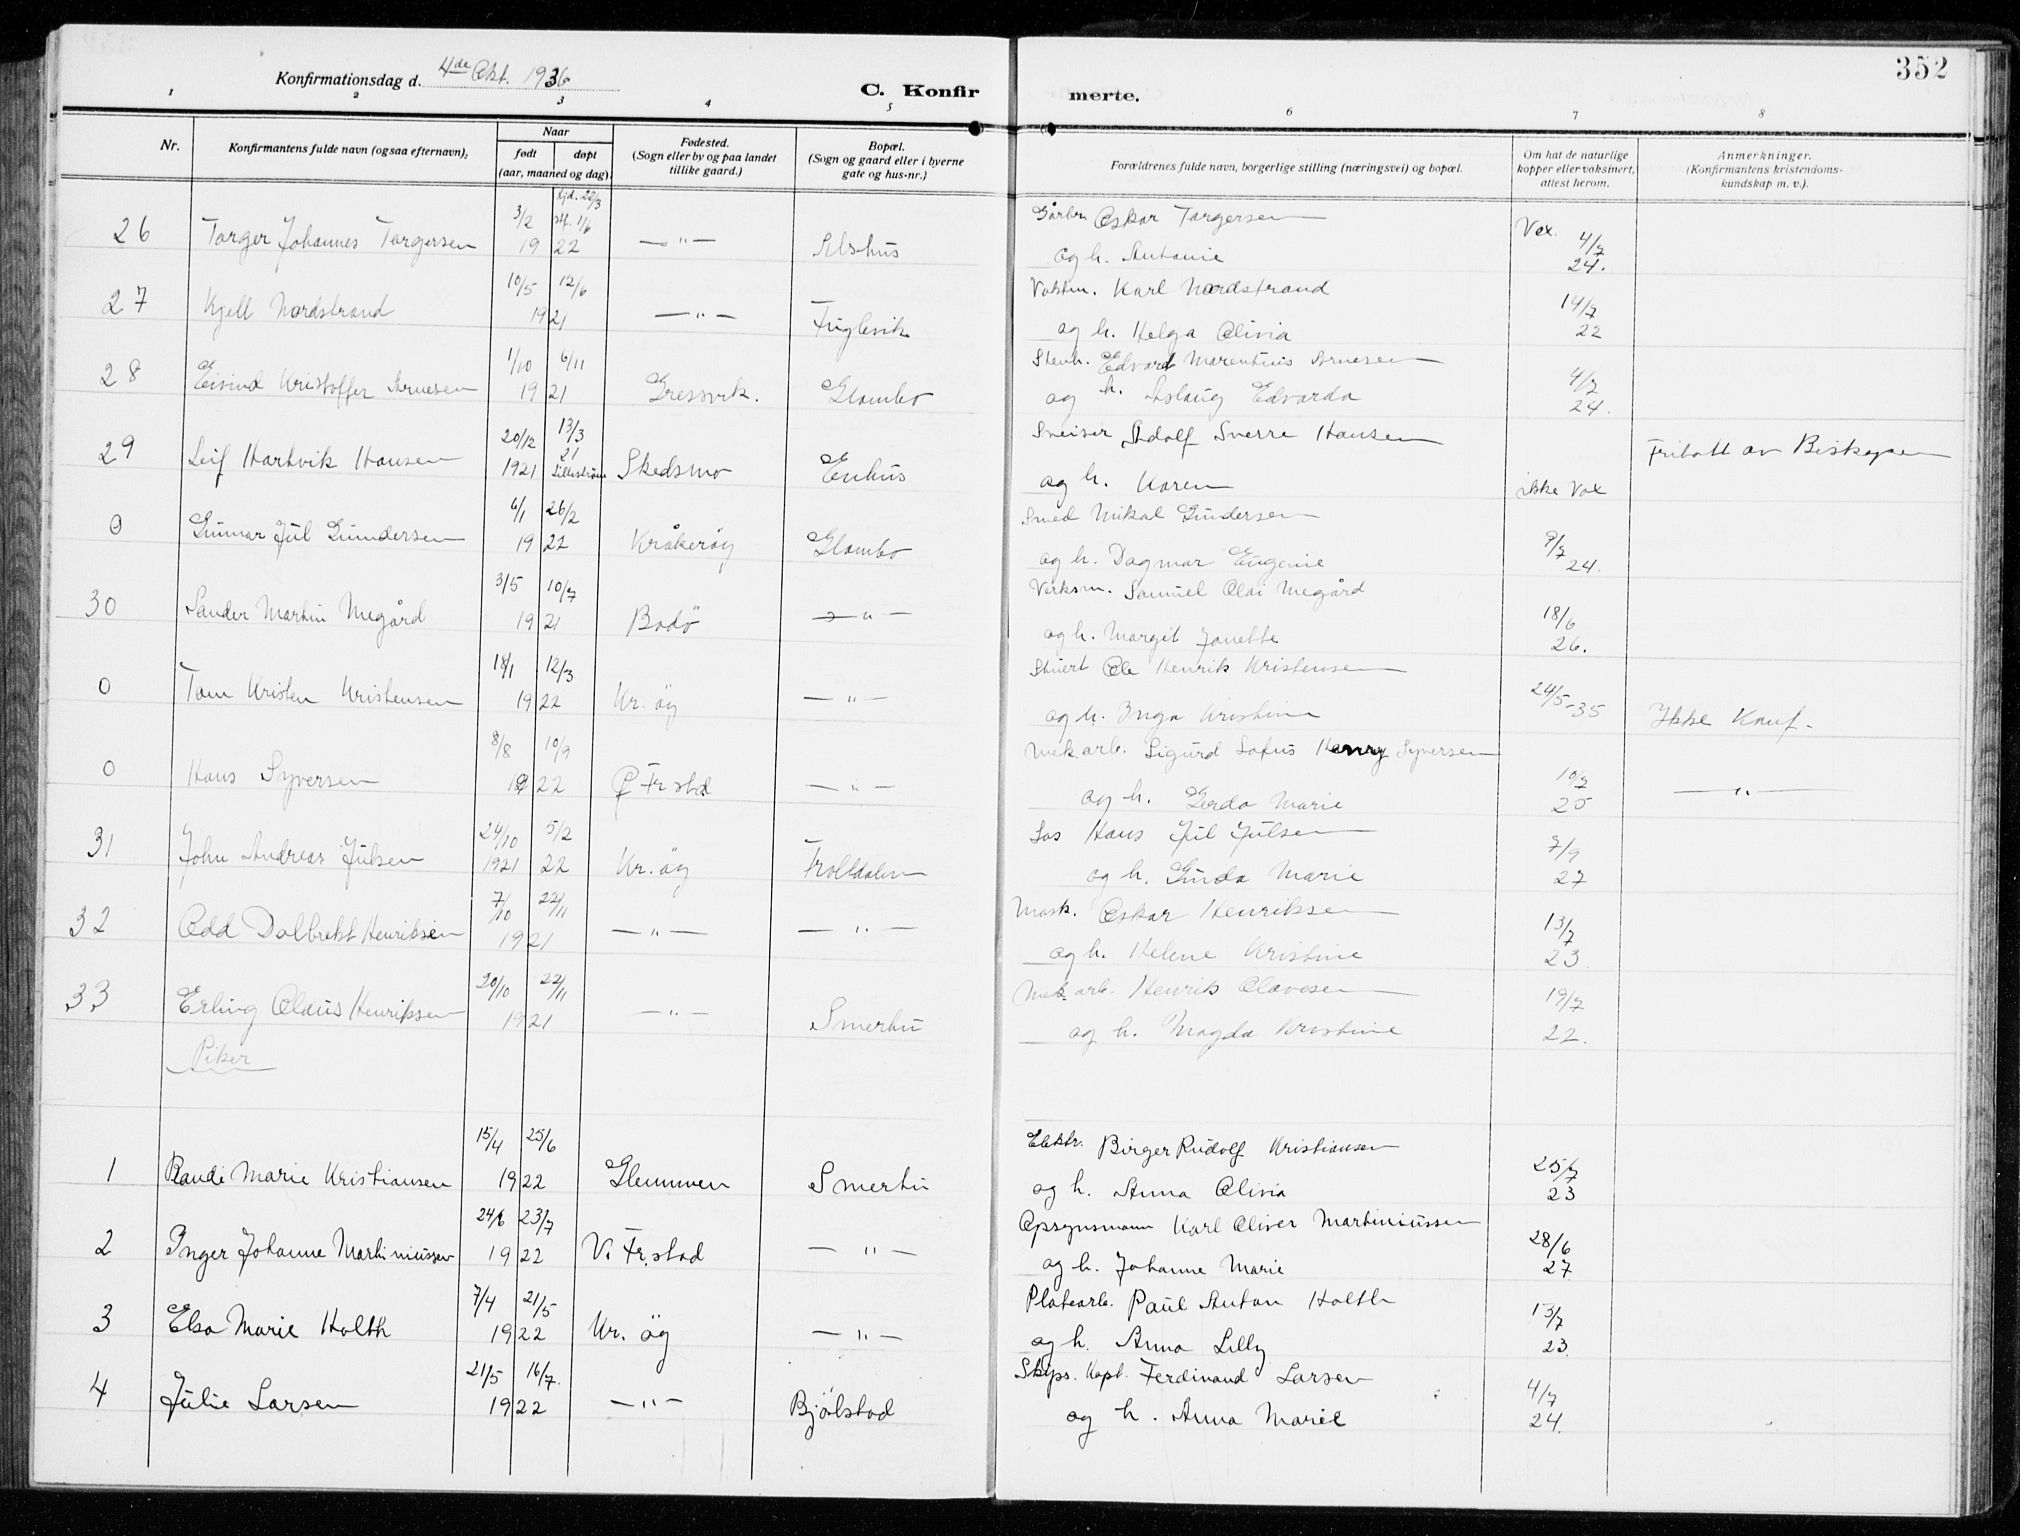 352
Konfirmationsdag d. 4de Okt. 1936
C. Konfir merte.
1 2 3 4 5 6 7 8
Nr.
Konfirmantens fulde navn (ogsaa efternavn).
Naar
født døpt
(aar, maaned og dag).
Fødested.
(Sogn eller by og paa landet
tillike gaard.)
Bopæl.
(Sogn og gaard eller i byerne
gate og hus-nr.)
Forældrenes fulde navn, borgerlige stilling (næringsvei) og bopæl.
Om hat de naturlige
kopper eller vaksinert,
attest herom.
Anmerkninger.
(Konfirmantens kristendoms-
kundskap m. v.).
3/2 hjd. 22/3 st. 11/6 Gårbr. Oskar Torgersen Vax. 4/7
26 Torger Johannes Torgersen 19 22 — " — Alshus og h. Antonie 24.
10/5 12/6 Vaktm. Karl Nordstrand 14/7
27 Kjell Nordstrand 19 21 — " — Fuglevik og h. Helga Olivia 22
1/10 6/11 Stenh. Edvard Marentius Arnesen 4/7
28 Eivind Kristoffer Arnesen 19 21 Gressvik. Glombo og h. Aslaug Edvarda 24.
20/12 13/3 21 Sveiser Adolf Sverre Hansen Fritatt av Biskopen
29 Leif Hartvik Hansen 1921 Lillestrøm Skedsmo Enhus og h. Karen ikke Vax
6/1 26/2 Smed Mikal Gundersen 9/7
0 Gunnar Jul Gundersen 19 22 Kråkerøy Glombo og h. Dagmar Eugenie 24.
3/5 10/7 Verksm. Samuel Olai Megård 18/6
30 Sander Martin Megård 19 21 Bodö — " — og h. Margit Janette 26.
18/1 12/3 Stuert Ole Henrik Kristensen 24/5-35
0 Tom Kristen Kristensen 19 22 Kr. öy — " — og h. Inga Kristine Ikke Konf.
8/8 10/9 Mek arb. Sigurd Lofus Henry Syversen 10/7
0 Hans Syversen 19 22 Ø Fr.stad — " — og h. Gerda Marie 25 — " —
24/10 5/2 Los Hans Jul Julsen 7/9
31 John Andreas Julsen 1921 22 Kr. öy Trolldalen og h. Gunda Marie 27
7/10 22/11 Mask. Oskar Henriksen 13/7
32 Odd Dalbrekt Henriksen 19 21 — " — — " — og h. Helene Kristine 23
20/10 22/11 Mek arb. Henrik Olavesen 19/7
33 Erling Olaus Henriksen 19 21 — " — Smertu og h. Magda Kristine 22.
Piker
15/4 25/6 Elektr. Birger Rudolf Kristiansen 25/7
1 Randi Marie Kristiansen 19 22 Glemmen Smertu og h. Anna Olivia 23
24/6 23/7 Opsynsmann Karl Oliver Martiniussen 28/6
2 Inger Johanne Martiniussen 19 22 V. Fr.stad — " — og h. Johanne Marie 27
7/4 21/5 Platearb. Paul Anton Holth 13/7
3 Elsa Marie Holth 19 22 Kr. öy — " — og h. Anna Lilly 23.
21/5 16/7. Skips. Kapt. Ferdinand Larsen 4/7
4 Julie Larsen 19 22 — " — Bjölstad og h. Anna Marie 24.